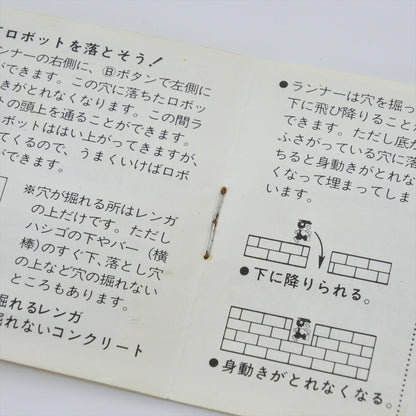 ロボットを落とそう!
ンナーの右側に、Ⓑボタンで左側に
ができます。この穴に落ちたロボッ
きがとれなくなります。この間ラ
トの頭上を通ることができます。
ボットははい上がってきますが、
てくるので、うまくいけばロボ
ができます。
※穴が掘れる所はレンガ
の上だけです。ただし
ハシゴの下やバー(横
棒)のすぐ下、落とし穴
の上など穴の掘れない
ところもあります。
掘れるレンガ
掘れないコンクリート
●ランナーは穴を掘っ
下に飛び降りること
できます。ただし底が
ふさがっている穴に落
ちると身動きがとれな
くなって埋まってしま
います。
●下に降りられる。
●身動きがとれなくなる。